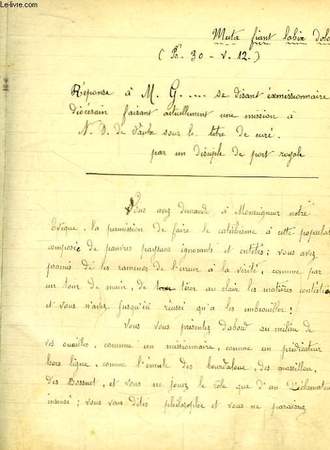 Le-livre.com
Muta fiant labia dolo
(Ps. 30 - v. 12.)
Réponse à M. G.... se disant exmissionnaire
diocésain faisant actuellement une mission à
N. D. de sous le titre de curé.
par un disciple de port royale
Vous avez demandé à Monseigneur notre
Evêque la permission de faire le catéchisme à cette populat
composée de pauvres paysans ignorants et entêtés ; vous avez
promis de les ramener de l'erreur à la vérité, comme par
un tour de main, de tirer au clair les matières contestées
et vous n'avez jusqu'ici réussi qu'à les embrouiller !
Vous vous présentez d'abord au milieu de
ces ouailles, comme un missionnaire, comme un prédicateur
hors ligne, comme l'émule des bourdaloue, des massillon,
des Bossuet, et vous ne jouez le rôle que d'un déclamateur
insensé ; vous vous dites philosophe et vous ne paraissez